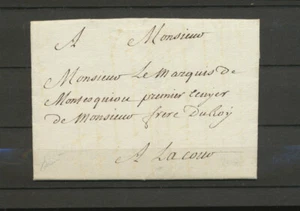 A Monsieur
Monsieur Le Marquis de
Montesquiou premier Ecuyer
de Monsieur frere Du Roy
A La cour